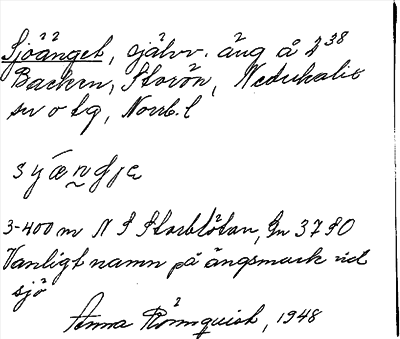 Sjöänget, självv. äng å 2³⁸
Backen, Storön, Nederkalix
sn o tg, Norrb. l
syænd̥je
3-400 m N Storblötan, En 37 SO
Vanligt namn på ängsmark vid
sjö
Anna Rönnquist, 1948